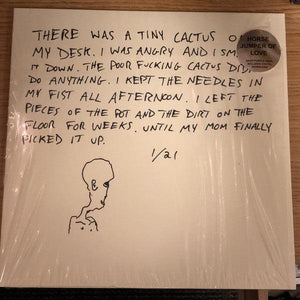 THERE WAS A TINY CACTUS
MY DESK. I WAS ANGRY AND I
IT DOWN. THE POOR FUCKING CACTUS
DO ANYTHING. I KEPT THE NEEDLES IN
MY FIST ALL AFTERNOON. I LEFT THE
PIECES OF THE POT AND THE DIRT ON THE
FLOOR FOR WEEKS. UNTIL MY MOM FINALLY
PICKED IT UP.
1/21
HORSE
JUMPER OF
LOVE